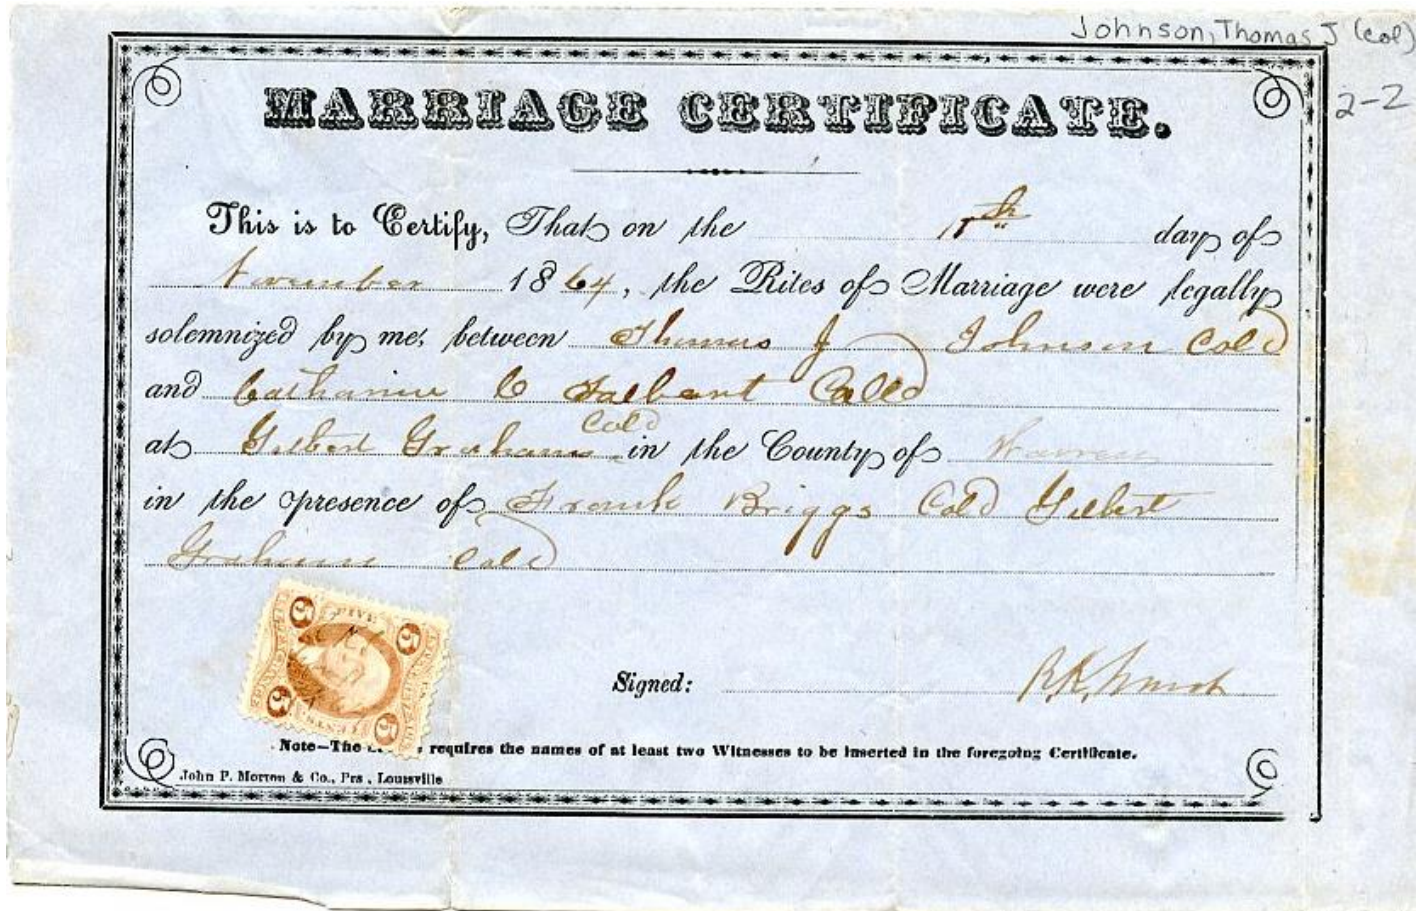 Johnson, Thomas J (col)
2-2
MARRIAGE CERTIFICATE.
This is to Certify, That on the day of
November 1864, the Rites of Marriage were legally
solemnized by me, between Thomas J Johnson Cold
and Catharine C Talbert Colld
at Gilbert Grahams Cold in the County of Warren
in the presence of Frank Briggs Cold Gilbert
Graham Cold
FIVE
5 5
5 5
CENTS
Signed:
Note—The requires the names of at least two Witnesses to be inserted in the foregoing Certificate.
John P. Morton & Co., Prs., Louisville